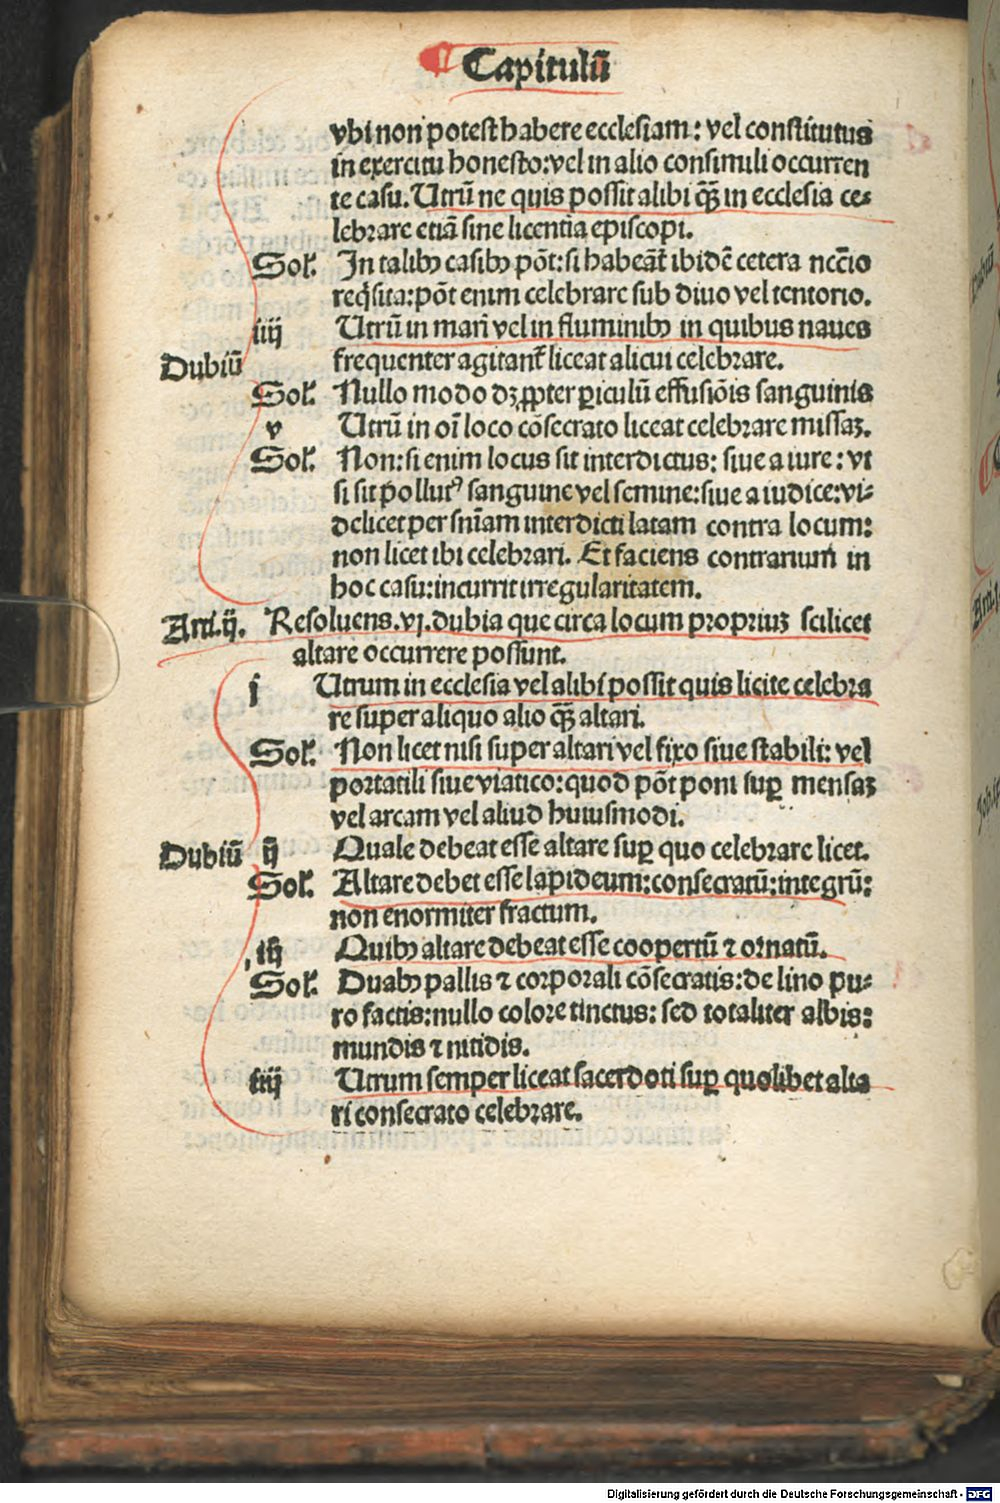 Capitulū
vbi non potest habere ecclesiam: vel constitutus
in exercitu honesto: vel in alio consimili occurren
te casu. Utrū ne quis possit alibi qꝫ̄ in ecclesia ce⸗
lebrare etiā sine licentia episcopi.
Sol'. In talibꝰ casibꝰ pōt: si habeāt᷑ ibidē cetera nccīo
reqͥsita: pōt enim celebrare sub diuo vel tentorio.
iiij Utrū in mari vel in fluminibꝰ in quibus naues
Dubiū frequenter agitant᷑ liceat alicui celebrare.
Sol'. Nullo modo dꝫ ꝓpter ꝑiculū effusiōis sanguinis
v Utrū in oī loco cōsecrato liceat celebrare missaꝫ.
Sol'. Non: si enim locus sit interdictus: siue a iure: vt
si sit pollutꝰ sanguine vel semine: siue a iudice: vi⸗
delicet per sniam interdicti latam contra locum:
non licet ibi celebrari. Et faciens contrarium in
hoc casu: incurrit irregularitatem.
Arti. ij. Resoluens. vj. dubia que circa locum propriuꝫ scilicet
altare occurrere possunt.
i Utrum in ecclesia vel alibi possit quis licite celebra
re super aliquo alio qꝫ̄ altari.
Sol'. Non licet nisi super altari vel fixo siue stabili: vel
portatili siue viatico: quod pōt poni suꝑ mensaꝫ
vel arcam vel aliud huiusmodi.
Dubiū ij Quale debeat esse altare suꝑ quo celebrare licet.
Sol'. Altare debet esse lapideum: consecratū: integrū:
non enormiter fractum.
iij Quibꝰ altare debeat esse coopertū ⁊ ornatū.
Sol'. Duabꝰ pallis ⁊ corporali cōsecratis: de lino pu⸗
ro factis: nullo colore tinctus: sed totaliter albis:
mundis ⁊ nitidis.
iiij Utrum semper liceat sacerdoti suꝑ quolibet alta
ri consecrato celebrare.
Digitalisierung gefördert durch die Deutsche Forschungsgemeinschaft - DFG